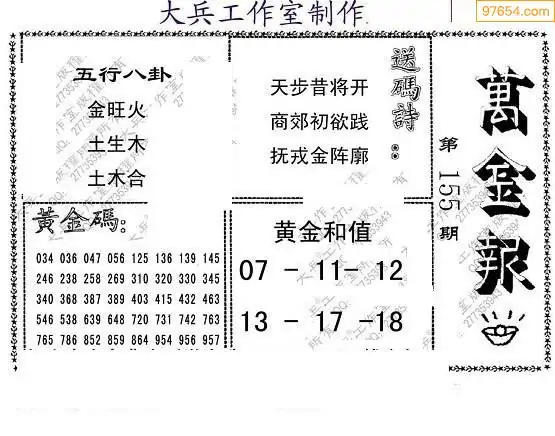 大兵工作室制作
97654.com
五行八卦
金旺火
土生木
土木合
送碼詩：
天步昔将开
商郊初欲践
抚戎金阵廓
萬金報
第155期
黃金碼：
034 036 047 056 125 136 139 145
246 238 258 269 310 320 330 345
340 368 387 389 403 415 432 463
546 538 639 648 720 731 742 763
765 786 852 859 864 954 956 957
黄金和值
07 - 11- 12
13 - 17 -18